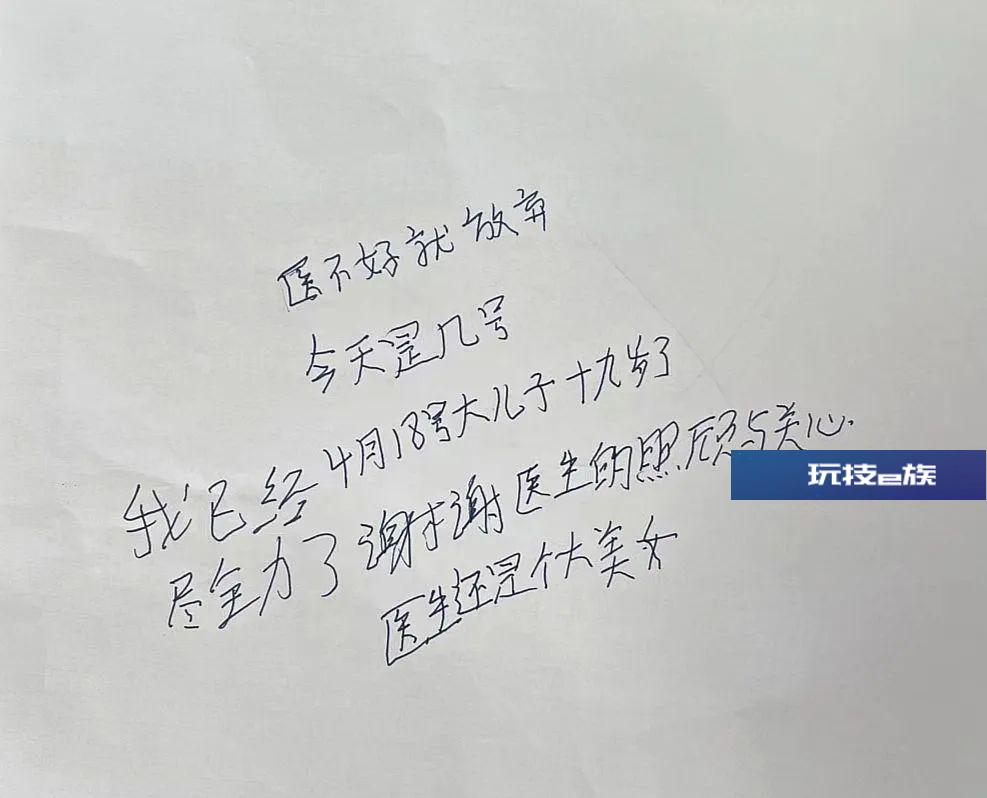 医不好就放弃
今天是几号
4月18号大儿子十九岁了
我已经
尽全力了谢谢医生的照顾与关心.
医生还是个大美女
玩技e族